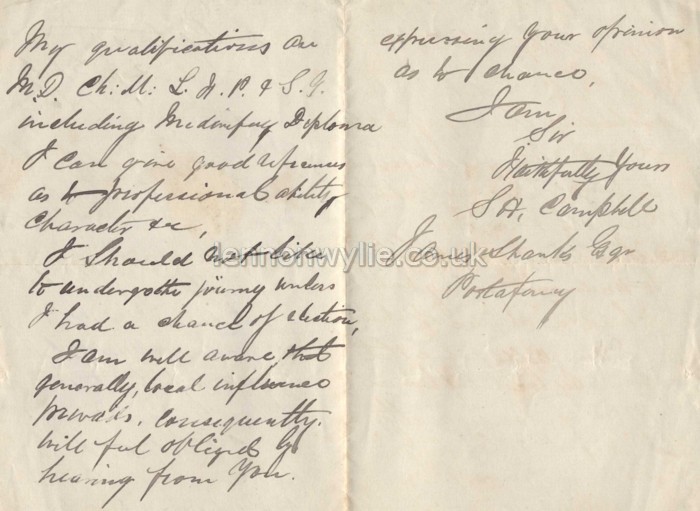 My qualifications are
M.D. Ch: M: L. F. P. & S. G.
including Midwifery Diploma
I can give good references
as to professional ability
character &c,
I should not like
to undergo the journey unless
I had a chance of election,
I am well aware, that
generally, local influence
prevails. consequently.
will feel obliged by
hearing from You.
expressing your opinion
as to chance,
I am
Sir
Faithfully Yours
S H, Campbell
James Shanks Esqr
Portaferry
lennonwylie.co.uk